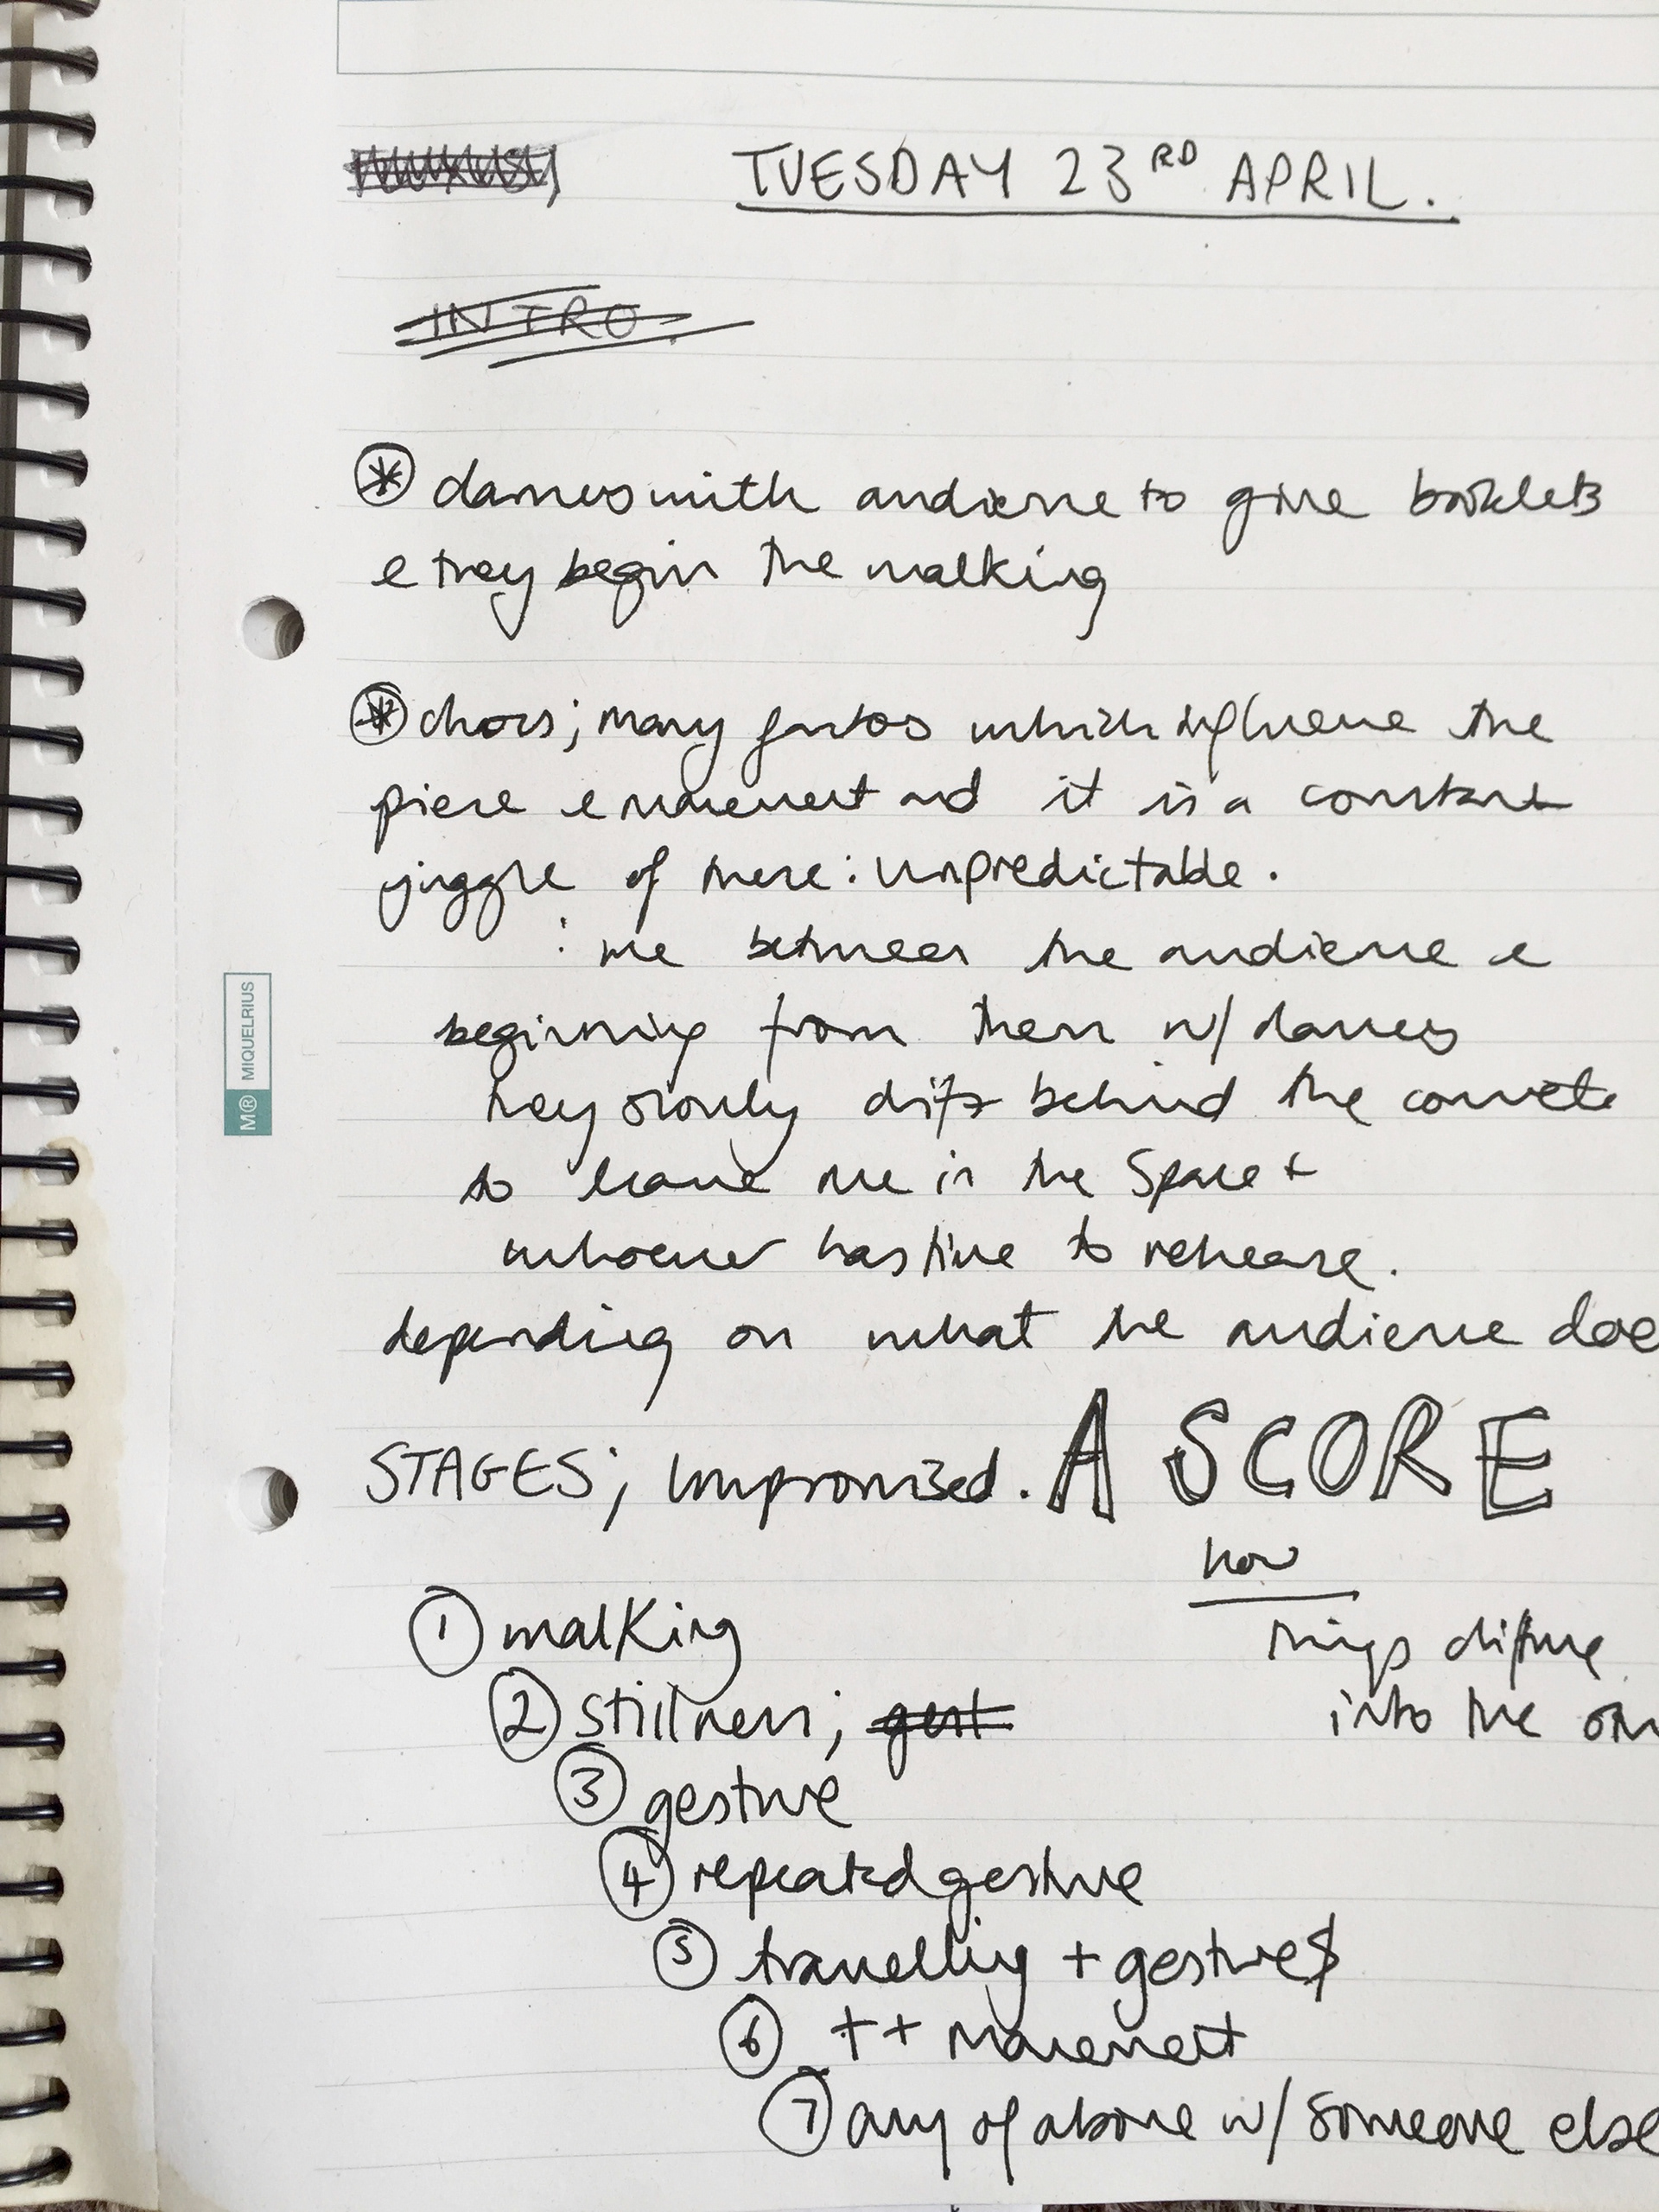 TUESDAY 23RD APRIL.
INTRO.
dancers with audience to give booklets
e they begin the walking
chaos; many factors which influence the
piece e movement and it is a constant
juggle of these: unpredictable.
: me between the audience e
beginning from them w/ dancers
they slowly drift behind the
to leave me in the Space +
whoever has time to rehearse.
depending on what the audience doe
STAGES; improvised. A SCORE
how
① walking
things diffuse
② stillness; gest
into the
③ gesture
④ repeated gesture
⑤ travelling + gestures
⑥ ++ movement
⑦ any of above w/ someone else
M® MIQUELRIUS